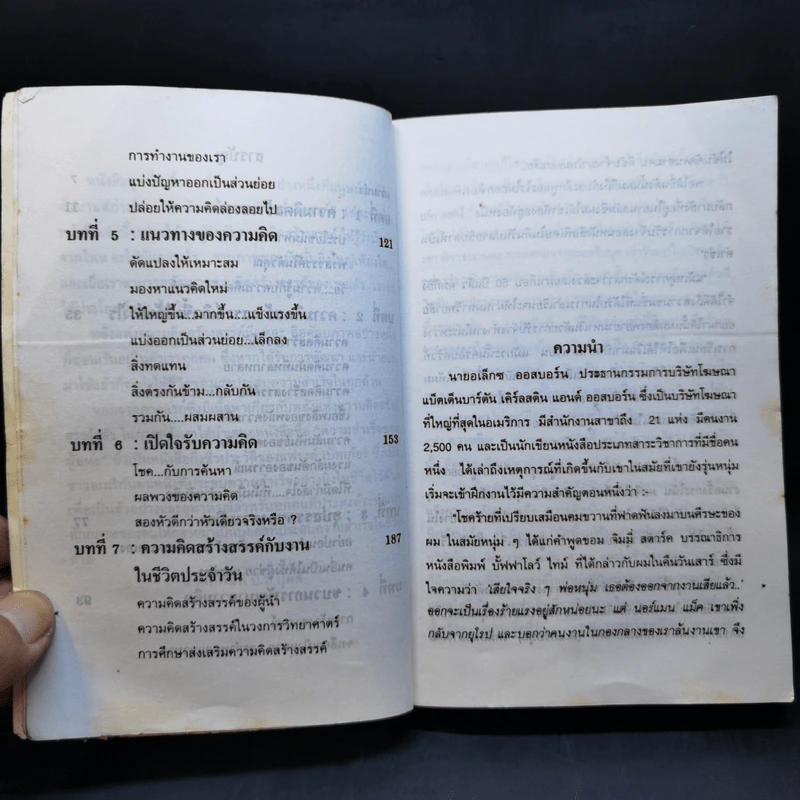 การทำงานของเรา
แบ่งปัญหาออกเป็นส่วนย่อย
ปล่อยให้ความคิดล่องลอยไป
บทที่ 5 : แนวทางของความคิด 121
ดัดแปลงให้เหมาะสม
มองหาแนวคิดใหม่
ให้ใหญ่ขึ้น...มากขึ้น...แข็งแรงขึ้น
แบ่งออกเป็นส่วนย่อย...เล็กลง
สิ่งทดแทน
สิ่งตรงกันข้าม...กลับกัน
รวมกัน....ผสมผสาน
บทที่ 6 : เปิดใจรับความคิด 153
โชค...กับการค้นหา
ผลพวงของความคิด
สองหัวดีกว่าหัวเดียวจริงหรือ ?
บทที่ 7 : ความคิดสร้างสรรค์กับงาน 187
ในชีวิตประจำวัน
ความคิดสร้างสรรค์ของผู้นำ
ความคิดสร้างสรรค์ในวงการวิทยาศาตร์
การศึกษาส่งเสริมความคิดสร้างสรรค์
ความนำ
นายอเล็กซ ออสบอร์น ประธานกรรมการบริษัทโฆษณา
แบ็ตเต็นบาร์ตัน เคิร์ลสติน แอนด์ ออสบอร์น ซึ่งเป็นบริษัทโฆษณา
ที่ใหญ่ที่สุดในอเมริการ มีสำนักงานสาขาถึง 21 แห่ง มีคนงาน
2,500 คน และเป็นนักเขียนหนังสือประเภทสาระวิชาการที่มีชื่อคน
หนึ่ง ได้เล่าถึงเหตุการณ์ที่เกิดขึ้นกับเขาในสมัยที่เขายังรุ่นหนุ่ม
เริ่มจะเข้าฝึกงานไว้มีความสำคัญตอนหนึ่งว่า :-
"โชคร้ายที่เปรียบเสมือนคมขวานที่ฟาดฟันลงมาบนศีรษะของ
ผม ในสมัยหนุ่ม ๆ ได้แก่คำพูดของ จิมมี่ สตาร์ค บรรณาธิการ
หนังสือพิมพ์ บั้ฟฟาโลว์ ไทม์ ที่ได้กล่าวกับผมในคืนวันเสาร์ ซึ่งมี
ใจความว่า 'เสียใจจริง ๆ พ่อหนุ่ม เธอต้องออกจากงานเสียแล้ว..'
ออกจะเป็นเรื่องร้ายแรงอยู่สักหน่อยนะ แต่ นอร์แมน แม็ค เขาเพิ่ง
กลับจากยุโรป และบอกว่าคนงานในกองกลางของเราล้นงานเขา จึง